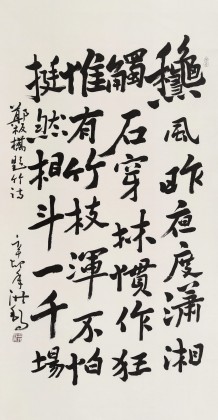 龝風昨夜度瀟湘
觸石穿林慣作狂
惟有竹枝渾不怕
挺然相斗一千場
鄭板橋題竹詩
辛卯年